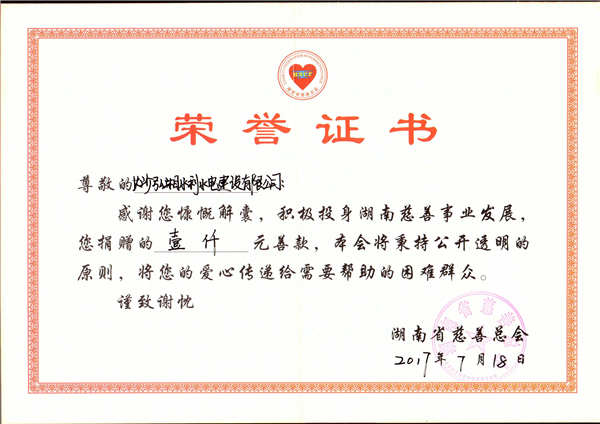 荣誉证书
尊敬的长沙弘湘水利水电建设有限公司:
感谢您慷慨解囊，积极投身湖南慈善事业发展，
您捐赠的 壹仟 元善款，本会将秉持公开透明的
原则，将您的爱心传递给需要帮助的困难群众。
谨致谢忱
湖南省慈善总会
2017年7月18日